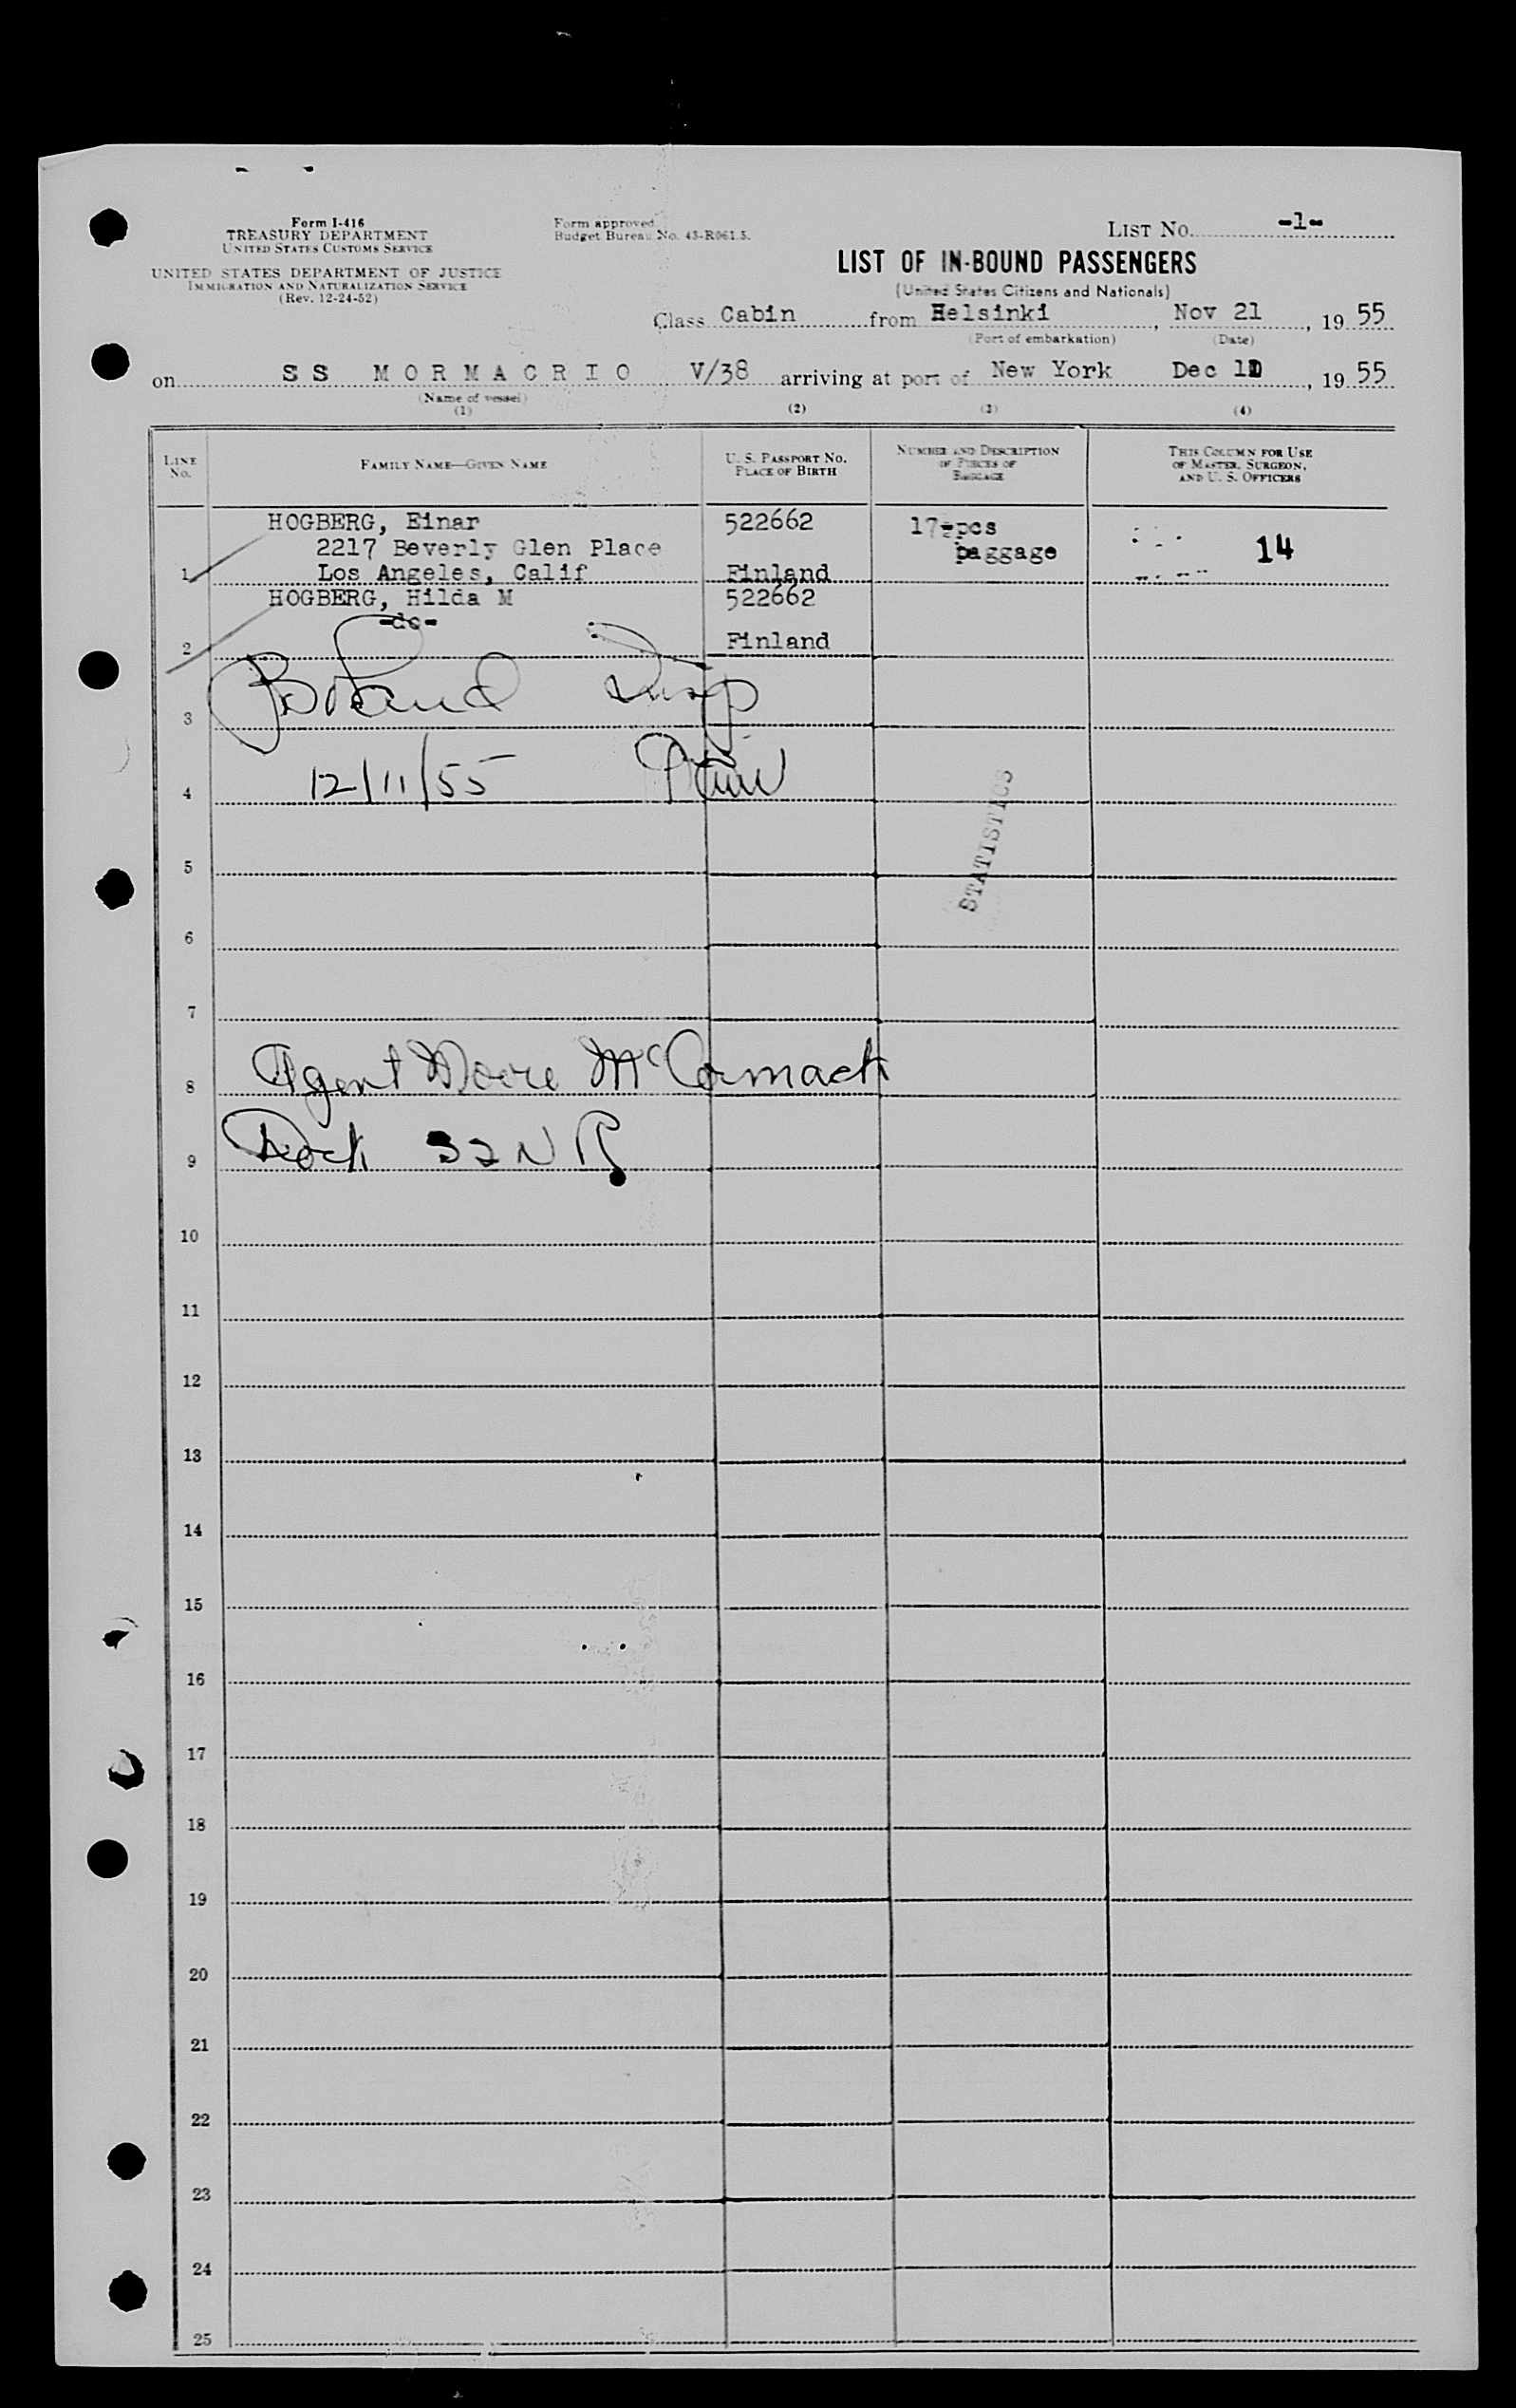 Form I-416
TREASURY DEPARTMENT
UNITED STATES CUSTOMS SERVICE
UNITED STATES DEPARTMENT OF JUSTICE
IMMIGRATION AND NATURALIZATION SERVICE
(Rev. 12-24-52)
Form approved.
Budget Bureau No. 43-R061.5.
LIST No. -1-
LIST OF IN-BOUND PASSENGERS
(United States Citizens and Nationals)
Class Cabin from Helsinki, Nov 21, 1955
(Port of embarkation) (Date)
on SS MORMACRIO V/38 arriving at port of New York Dec 11, 1955
(Name of vessel)
(1) (2) (3) (4)
LINE No. FAMILY NAME—GIVEN NAME U. S. PASSPORT NO. PLACE OF BIRTH NUMBER AND DESCRIPTION OF PIECES OF BAGGAGE THIS COLUMN FOR USE OF MASTER, SURGEON, AND U. S. OFFICERS
HOGBERG, Einar 522662 17-pcs
2217 Beverly Glen Place baggage 14
1 Los Angeles, Calif Finland
HOGBERG, Hilda M 522662
-do-
2 Finland
3
4 12/11/55
STATISTICS
5
6
7
8 Agent Moore McCormack
9 Dock 32 NR
10
11
12
13
14
15
16
17
18
19
20
21
22
23
24
25